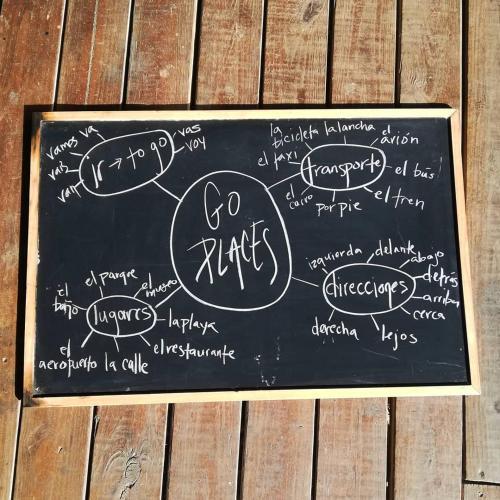 GO
PLACES
ir → to go
vamos
va
vas
voy
vais
van
transporte
la
bicicleta
la lancha
el
avión
el taxi
el bús
el
carro
por pie
el tren
lugares
el parque
el
museo
el
baño
la playa
el
aeropuerto
la calle
el restaurante
direcciones
izquierda
delante
abajo
detrás
arriba
cerca
derecha
lejos